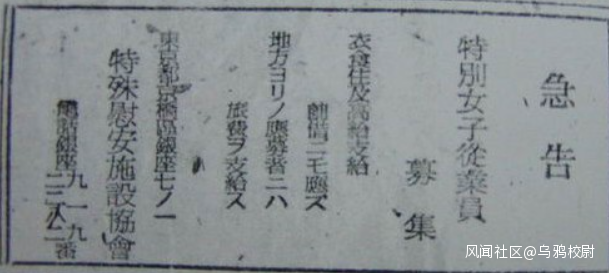 急告
特別女子從業員
募集
衣食住及高給支給
前借ニモ應ズ
地方ヨリノ應募者ニハ
旅費ヲ支給ス
東京都京橋區銀座七ノ一
特殊慰安施設協會
電話銀座
九一九番
二二八二
风闻社区@乌鸦校尉